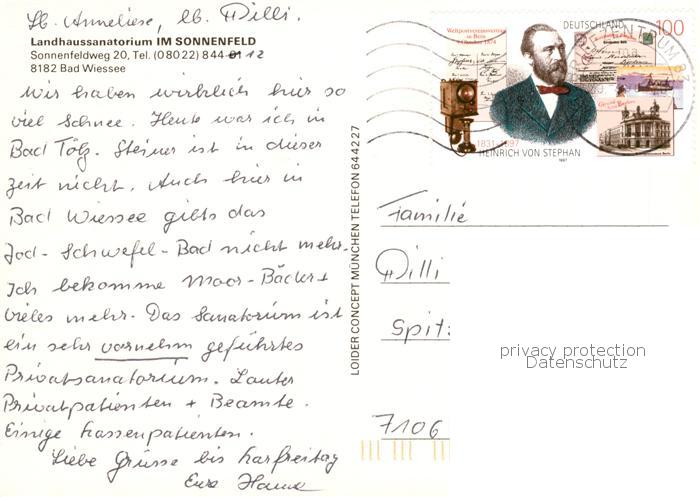 Lb. Anneliese, lb. Willi.
Landhaussanatorium IM SONNENFELD
Sonnenfeldweg 20, Tel. (08022) 844 12
8182 Bad Wiessee
Wir haben wirklich hier so
viel Schnee. Heute war ich in
Bad Tölz. Steiner ist in dieser
Zeit nicht. Auch hier in
Bad Wiessee gibts das
Jod-Schwefel-Bad nicht mehr.
Ich bekomme Moor-Bäder +
vieles mehr. Das Sanatorium ist
ein sehr vornehm geführtes
Privatsanatorium. Lauter
Privatpatienten + Beamte.
Einige Kassenpatienten.
Liebe Grüsse bis Karfreitag
Eure
LOIDER CONCEPT MÜNCHEN TELEFON 644227
DEUTSCHLAND 100
Weltpostvereinsvertrag
in Bern
9. Oktober 1874
1831-1897
HEINRICH VON STEPHAN
1997
Familie
Willi
Spit
7106
privacy protection
Datenschutz